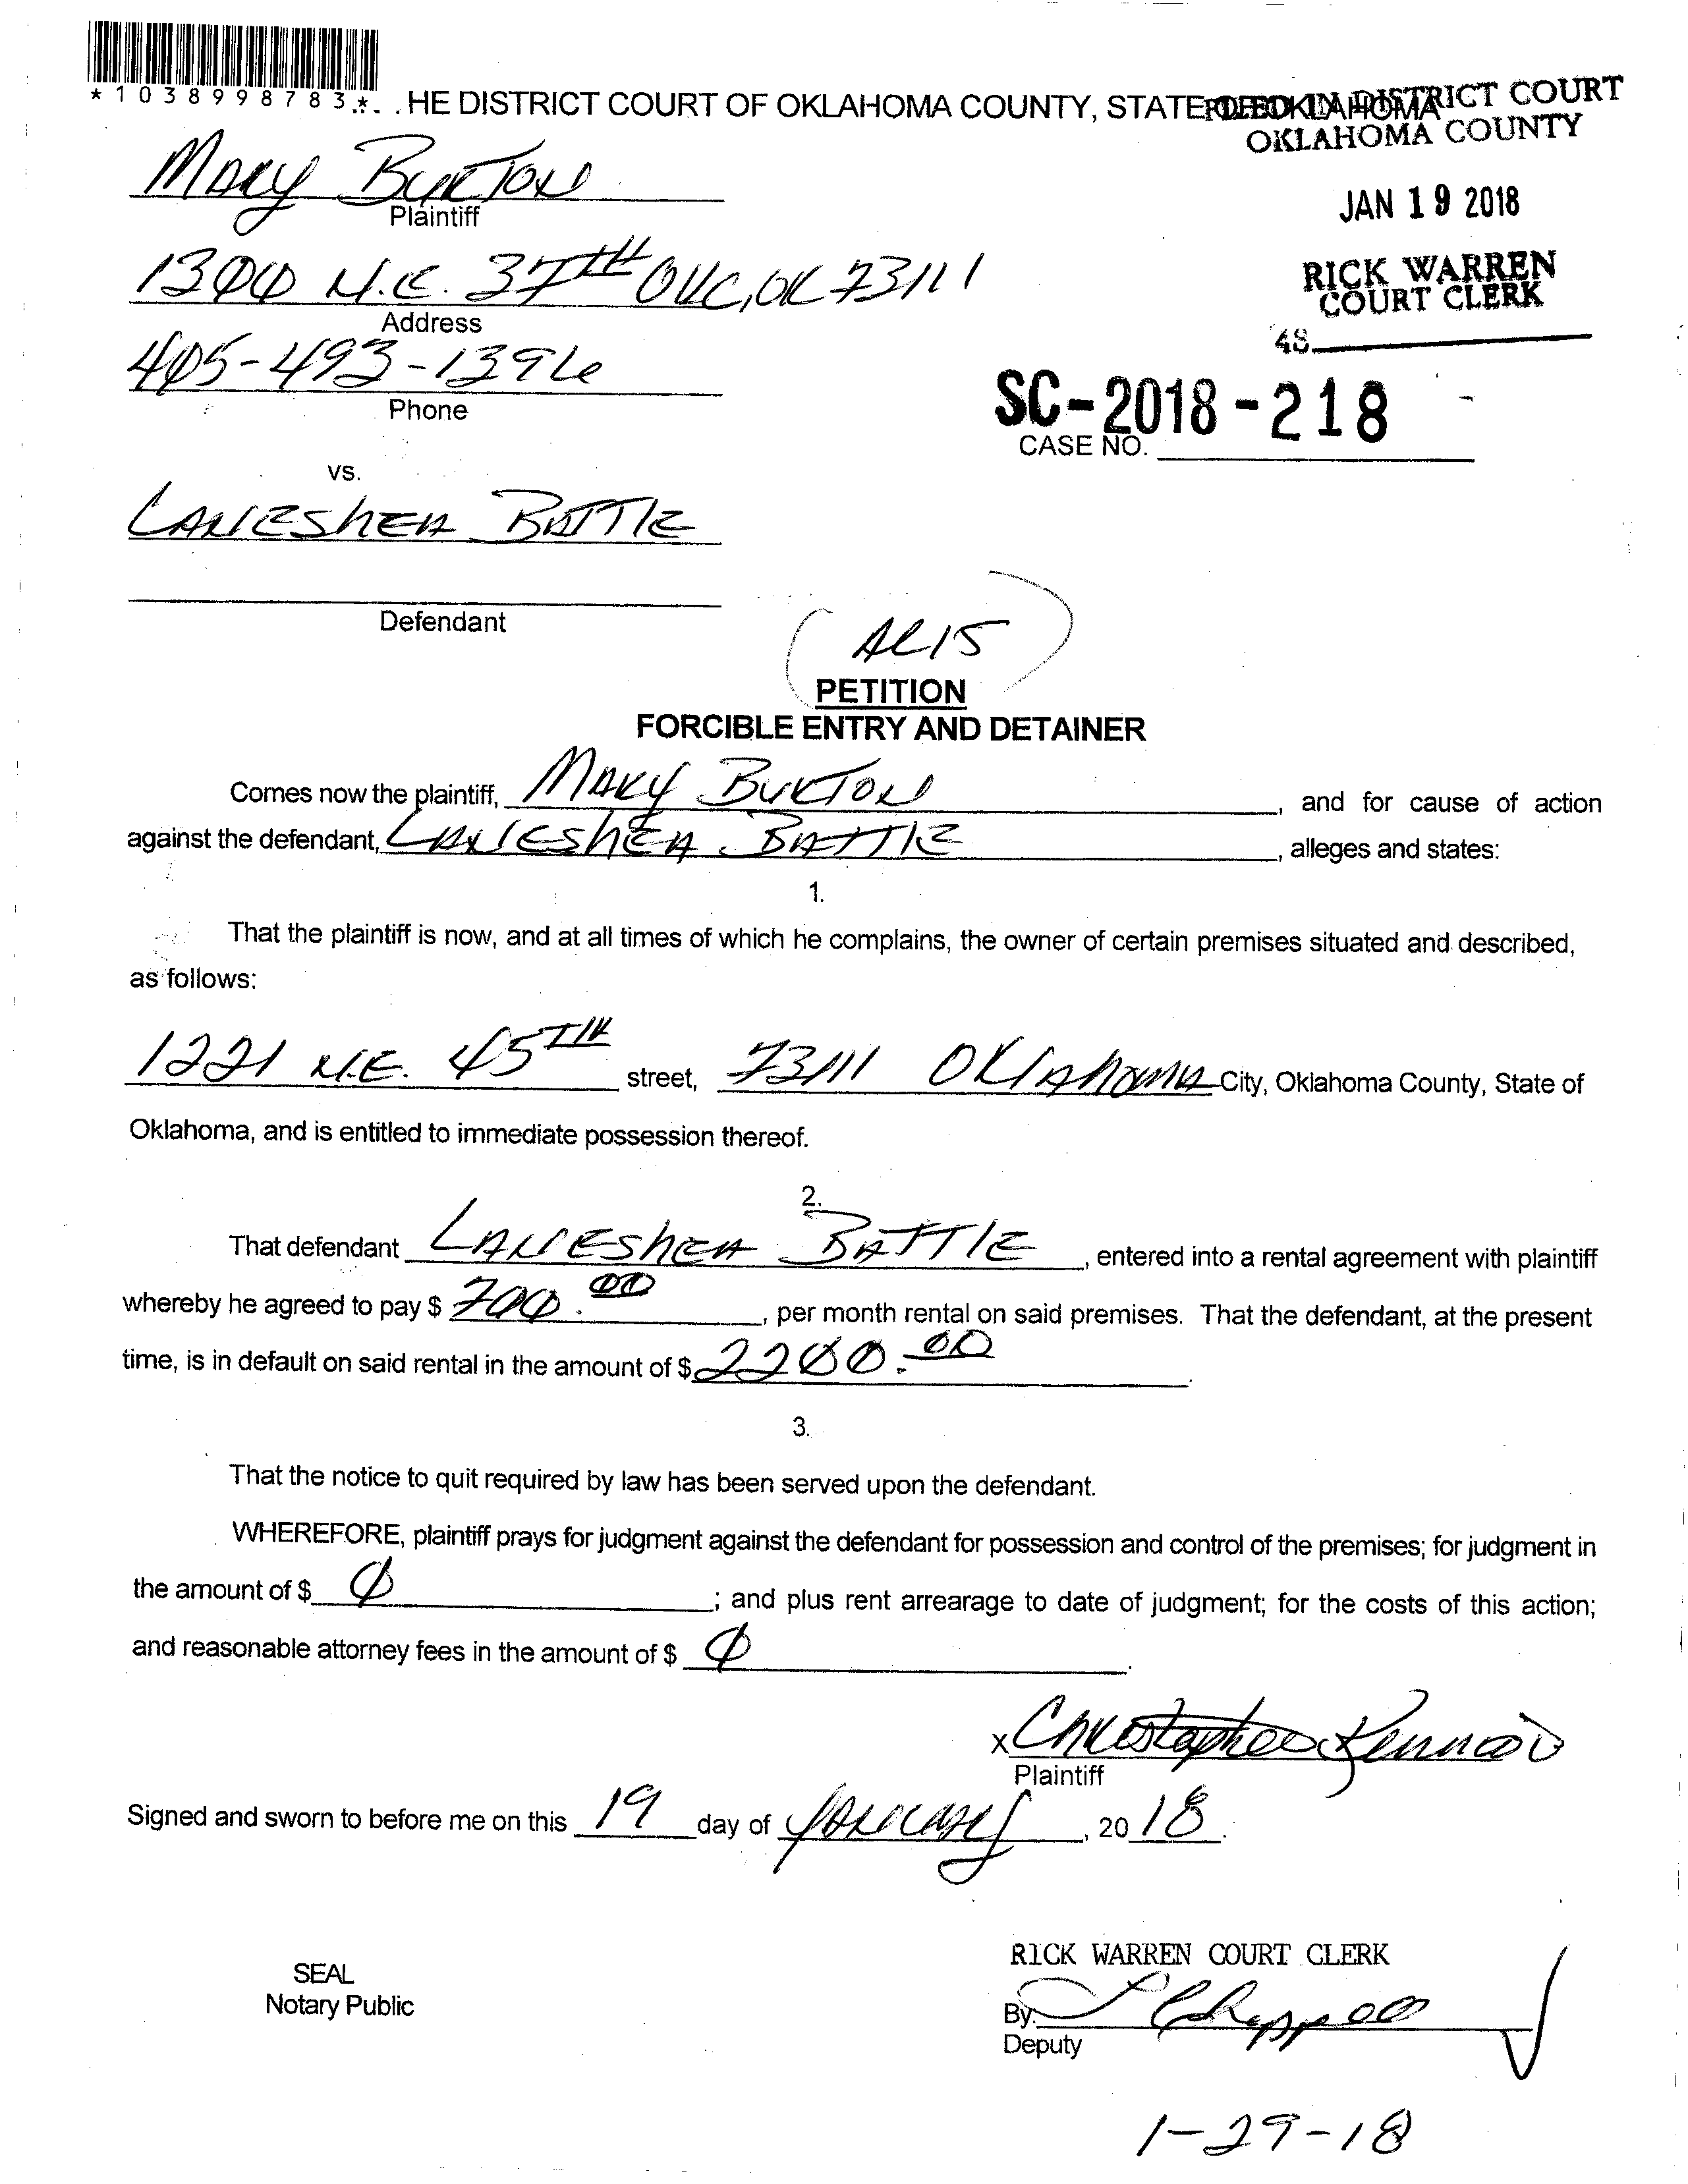 *1038998783* HE DISTRICT COURT OF OKLAHOMA COUNTY, STATE OF OKLAHOMA
FILED IN DISTRICT COURT
OKLAHOMA COUNTY
JAN 19 2018
RICK WARREN
COURT CLERK
48
Mary Burton
Plaintiff
1300 N.E. 37th OKC, OK 73111
Address
405-493-1396
Phone
SC-2018-218
CASE NO.
vs.
LANESHEA BATTLE
Defendant
PETITION
FORCIBLE ENTRY AND DETAINER
Comes now the plaintiff, Mary Burton, and for cause of action
against the defendant, LANESHEA BATTLE, alleges and states:
1.
That the plaintiff is now, and at all times of which he complains, the owner of certain premises situated and described,
as follows:
1221 N.E. 45TH street, 73111 Oklahoma City, Oklahoma County, State of
Oklahoma, and is entitled to immediate possession thereof.
2.
That defendant LANESHEA BATTLE, entered into a rental agreement with plaintiff
whereby he agreed to pay $ 700.00, per month rental on said premises. That the defendant, at the present
time, is in default on said rental in the amount of $ 2200.00.
3.
That the notice to quit required by law has been served upon the defendant.
WHEREFORE, plaintiff prays for judgment against the defendant for possession and control of the premises; for judgment in
the amount of $ 0; and plus rent arrearage to date of judgment; for the costs of this action;
and reasonable attorney fees in the amount of $ 0.
x Christopher
Plaintiff
Signed and sworn to before me on this 19 day of January, 2018.
RICK WARREN COURT CLERK
SEAL
Notary Public
By:
Deputy
1-29-18